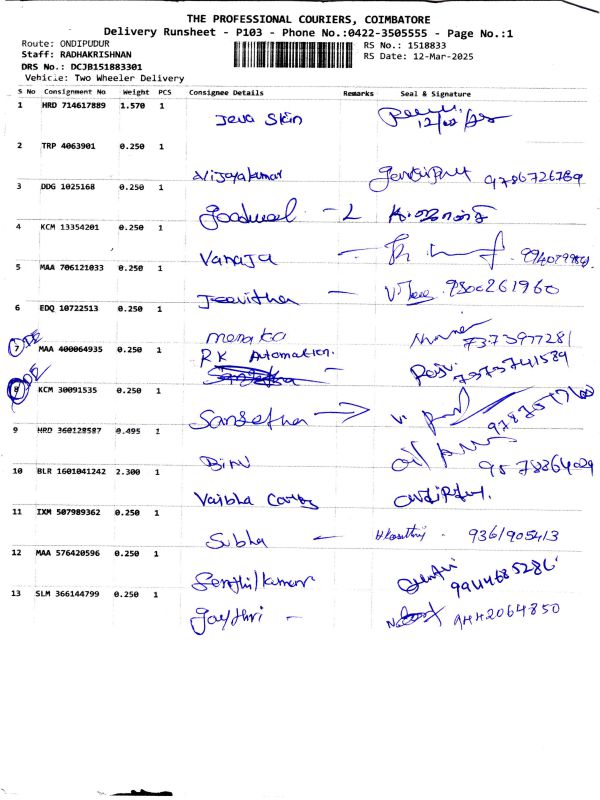 THE PROFESSIONAL COURIERS, COIMBATORE
Delivery Runsheet - P103 - Phone No.:0422-3505555 - Page No.:1
Route: ONDIPUDUR
Staff: RADHAKRISHNAN
DRS No.: DCJB151883301
Vehicle: Two Wheeler Delivery
RS No.: 1518833
RS Date: 12-Mar-2025
S No Consignment No Weight PCS Consignee Details Remarks Seal & Signature
1 HRD 714617889 1.570 1
Jeva Skin
2 TRP 4063901 0.250 1
Vijayakumar 9786726789
3 DDG 1025168 0.250 1
Goodwool - L
4 KCM 13354201 0.250 1
Vanaja -
5 MAA 706121033 0.250 1
Jeevitha - 9500261960
6 EDQ 10722513 0.250 1
menaka 7373977281
7 MAA 400064935 0.250 1
RK Automation. 7373741589
8 KCM 30091535 0.250 1
Sangetha
9 HRD 360128587 0.495 1
9578364029
10 BLR 1601041242 2.300 1
Vaibha
11 IXM 507989362 0.250 1
Subha - 9361905413
12 MAA 576420596 0.250 1
Senthilkumar 9944685286
13 SLM 366144799 0.250 1
Gaythri - 9442064850